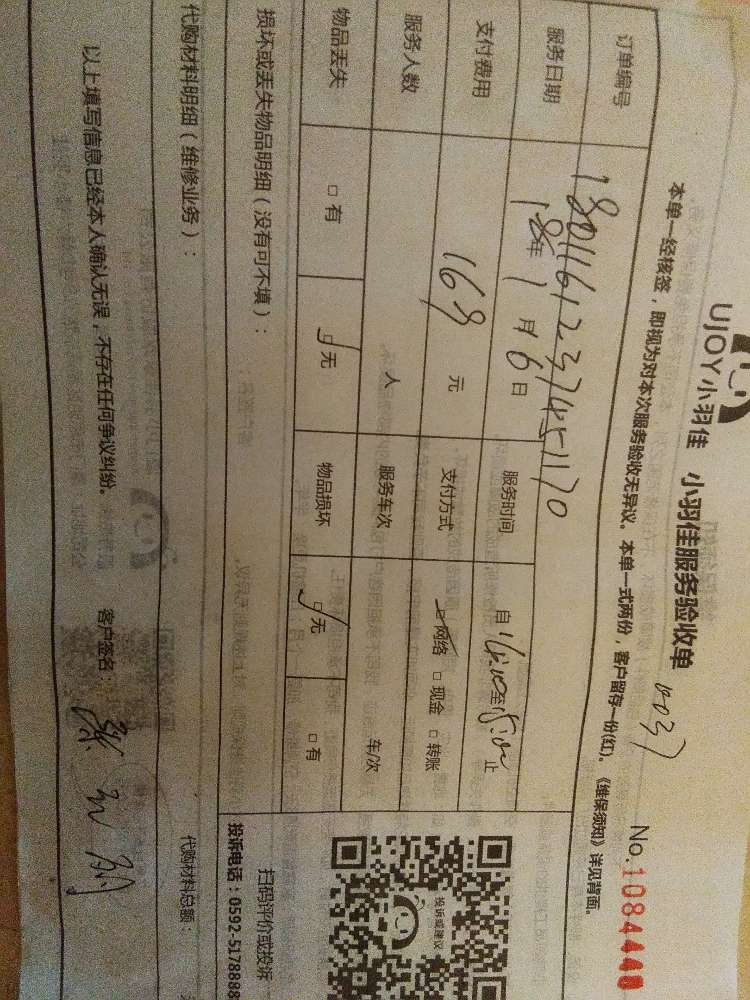 UJOY小羽佳 小羽佳服务验收单
No.1084448
本单一经核签，即视为对本次服务验收无异议。本单一式两份，客户留存一份(红)。《维保须知》详见背面。
订单编号
服务日期 18年1月6日 服务时间 自 至 止
支付费用 168元 支付方式 网络 □现金 □转账
服务人数 人 服务车次 车/次
物品丢失 □有 无 物品损坏 □无 □有
损坏或丢失物品明细（没有可不填）：
投诉或建议
扫码评价或投诉
投诉电话：0592-5178888
代购材料明细（维修业务）： 代购材料总额：
以上填写信息已经本人确认无误，不存在任何争议纠纷。 客户签名：